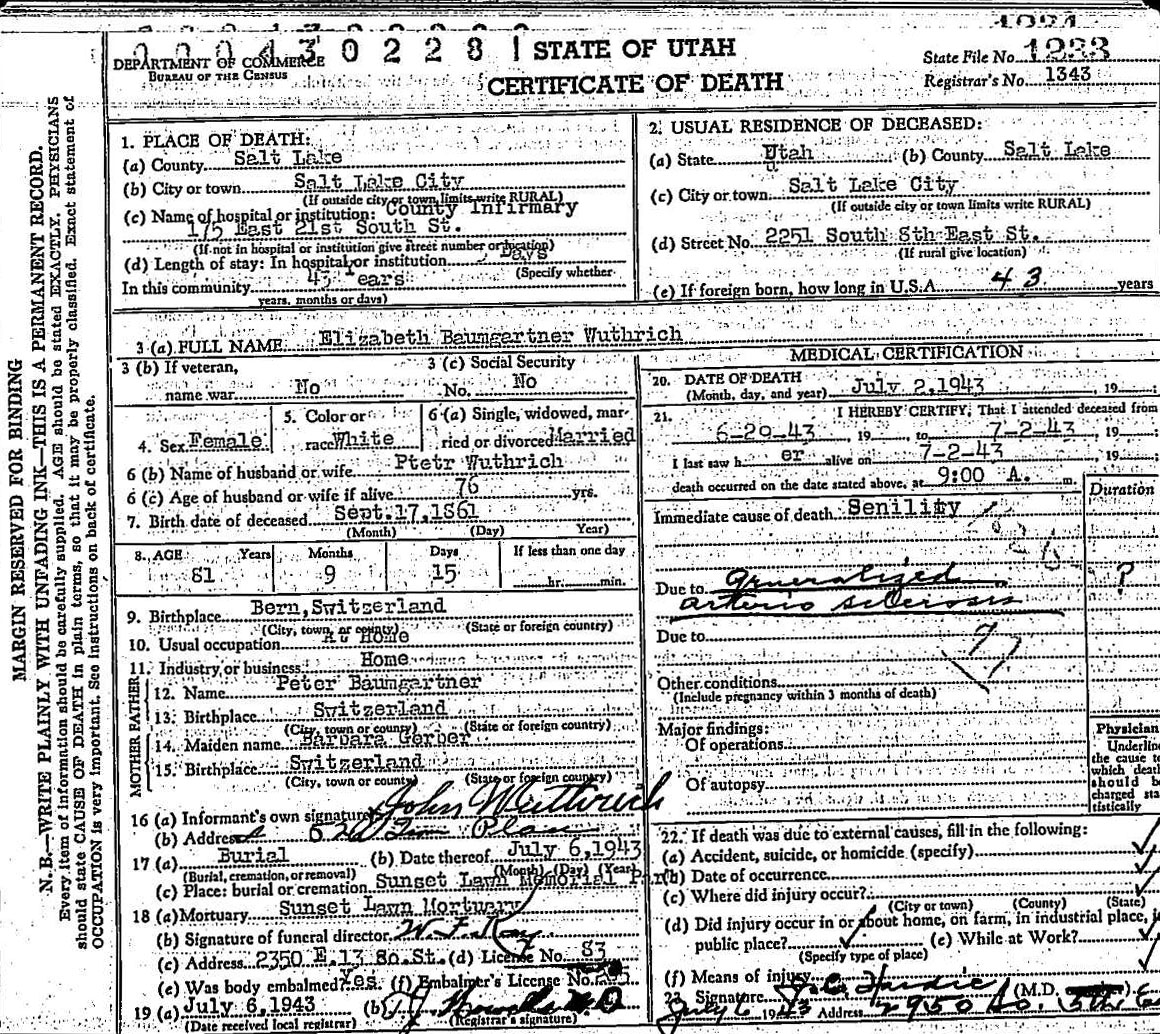 000430228 1 STATE OF UTAH
DEPARTMENT OF COMMERCE
BUREAU OF THE CENSUS
CERTIFICATE OF DEATH
State File No. 1233
Registrar's No. 1343
MARGIN RESERVED FOR BINDING
N. B.—WRITE PLAINLY WITH UNFADING INK—THIS IS A PERMANENT RECORD.
Every item of information should be carefully supplied. AGE should be stated EXACTLY. PHYSICIANS
should state CAUSE OF DEATH in plain terms, so that it may be properly classified. Exact statement of
OCCUPATION is very important. See instructions on back of certificate.
1. PLACE OF DEATH:
(a) County Salt Lake
(b) City or town Salt Lake City
(If outside city or town limits write RURAL)
(c) Name of hospital or institution: County Infirmary
175 East 21st South St.
(If not in hospital or institution give street number or location)
(d) Length of stay: In hospital or institution Days
(Specify whether
In this community 43 ears
years, months or days)
2. USUAL RESIDENCE OF DECEASED:
(a) State Utah (b) County Salt Lake
(c) City or town Salt Lake City
(If outside city or town limits write RURAL)
(d) Street No. 2251 South 8th East St.
(If rural give location)
(e) If foreign born, how long in U.S.A. 43 years
3 (a) FULL NAME Elizabeth Baumgartner Wuthrich
3 (b) If veteran,
name war No
3 (c) Social Security
No. No
4. Sex Female
5. Color or
race White
6 (a) Single, widowed, mar-
ried or divorced Married
6 (b) Name of husband or wife Ptetr Wuthrich
6 (c) Age of husband or wife if alive 76 yrs.
7. Birth date of deceased Sept. 17, 1861
(Month) (Day) Year)
8. AGE Years Months Days If less than one day
81 9 15 hr. min.
9. Birthplace Bern, Switzerland
(City, town or county) (State or foreign country)
10. Usual occupation At Home
11. Industry or business Home
FATHER
12. Name Peter Baumgartner
13. Birthplace Switzerland
(City, town or county) (State or foreign country)
MOTHER
14. Maiden name Barbara Gerber
15. Birthplace Switzerland
(City, town or county) (State or foreign country)
16 (a) Informant's own signature John Wuthrich
(b) Address
17 (a) Burial (b) Date thereof July 6, 1943
(Burial, cremation, or removal) (Month) (Day) (Year)
(c) Place: burial or cremation Sunset Lawn Memorial Park
18 (a) Mortuary Sunset Lawn Mortuary
(b) Signature of funeral director
(c) Address 2350 E. 13 So. St. (d) License No. 83
(e) Was body embalmed? Yes. (f) Embalmer's License No.
19 (a) July 6, 1943 (b)
(Date received local registrar) (Registrar's signature)
MEDICAL CERTIFICATION
20. DATE OF DEATH
(Month, day, and year) July 2, 1943 , 19 ;
21. I HEREBY CERTIFY, That I attended deceased from
6-20-43 , 19 to 7-2-43 , 19 ;
I last saw h er alive on 7-2-43 , 19 ;
death occurred on the date stated above, at 9:00 A. m.
Duration
Immediate cause of death Senility
Due to generalized ?
arterio sclerosis
Due to
Other conditions
(Include pregnancy within 3 months of death)
Major findings:
Of operations
Of autopsy
Physician
Underline
the cause to
which death
should be
charged sta
tistically
22. If death was due to external causes, fill in the following:
(a) Accident, suicide, or homicide (specify)
(b) Date of occurrence
(c) Where did injury occur?
(City or town) (County) (State)
(d) Did injury occur in or about home, on farm, in industrial place, i
public place? (e) While at Work?
(Specify type of place)
(f) Means of injury
23. Signature (M.D.
July 6 1943 Address 2950 So. 5th E